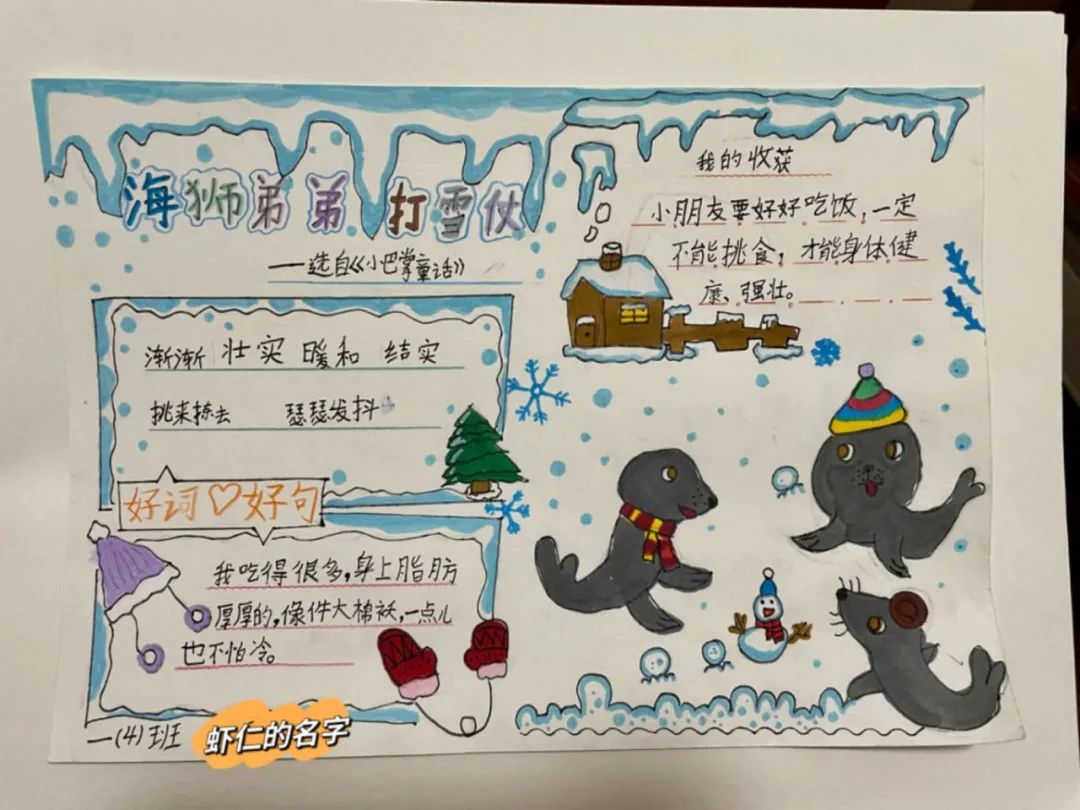 海狮弟弟打雪仗
——选自《小巴掌童话》
渐渐 壮实 暖和 结实
挑来拣去 瑟瑟发抖
好词♡好句
我吃得很多,身上脂肪
厚厚的,像件大棉袄,一点儿
也不怕冷。
一(4)班 虾仁的名字
我的收获
小朋友要好好吃饭,一定
不能挑食,才能身体健
康、强壮。